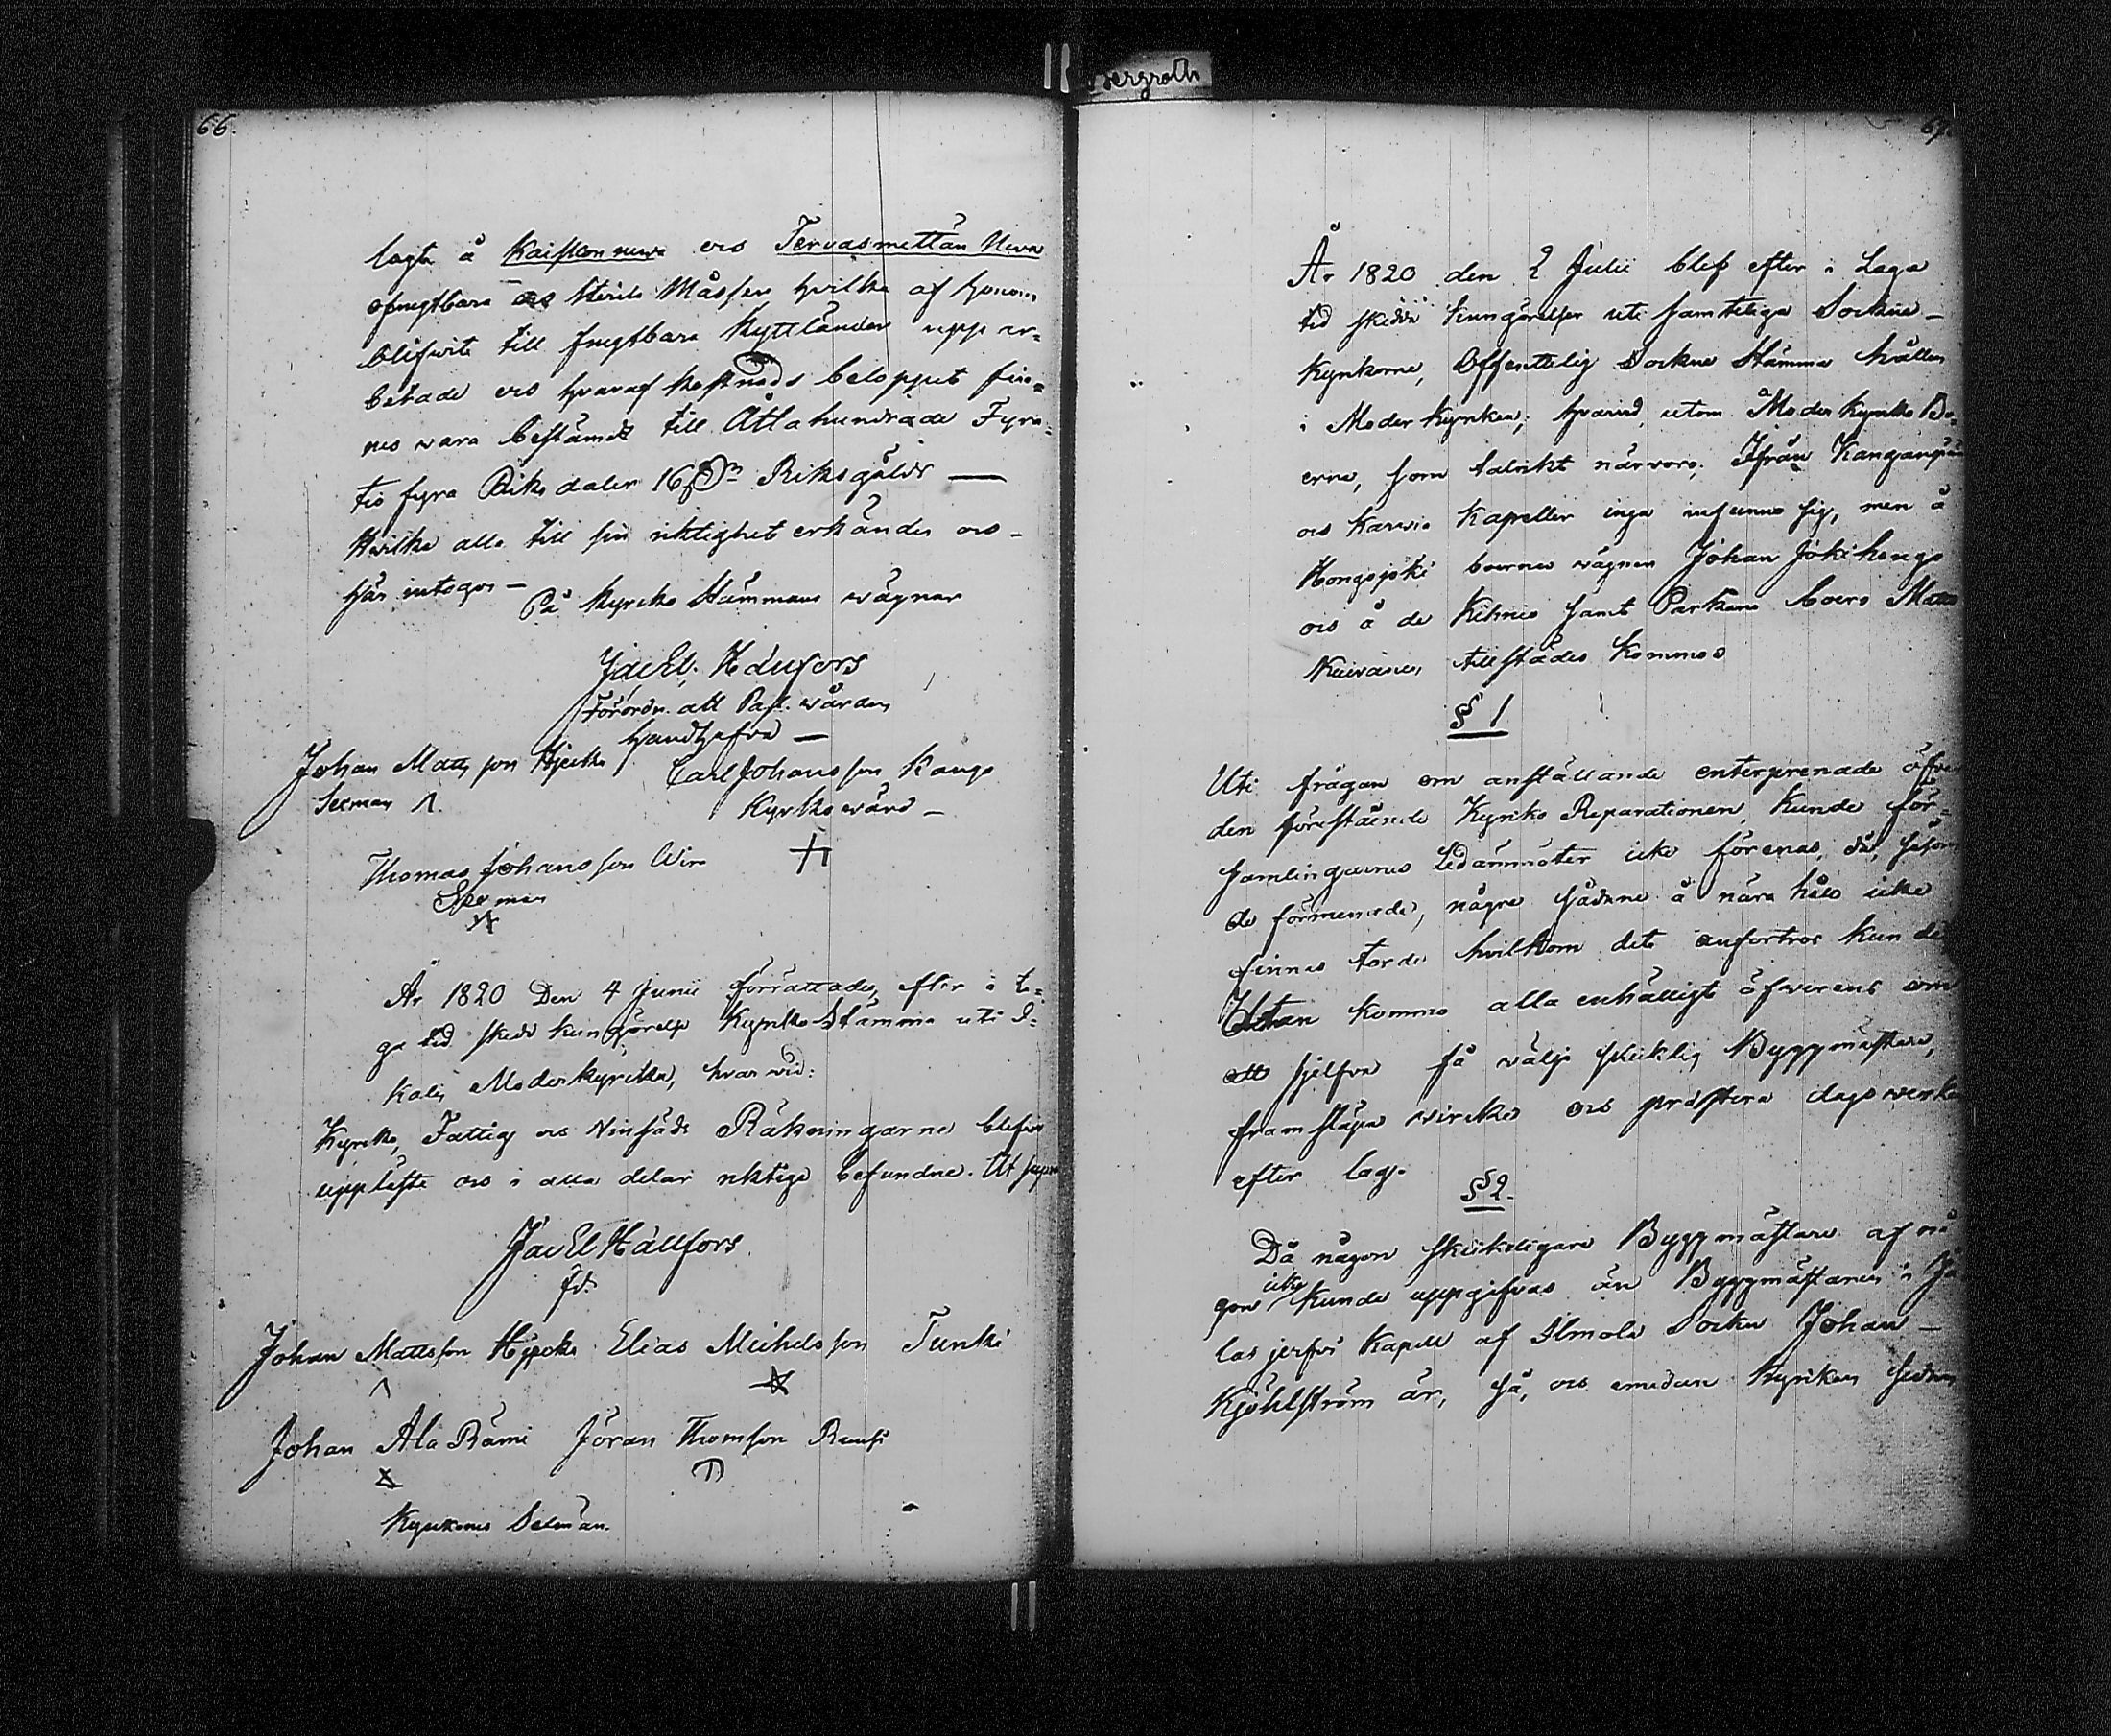 Bergroth
66.
lagte å Kaiskon neva och Tervasmettän Neva
ofrugtbara och sterila Måssar hvilka af honom
blifwit till frugtbara Kyttländer upp ar-
betade och hvaraf kostnads beloppet fin-
nes wara bestämdt till Åttahundrade Fyra-
tio fyra Riksdaler 16 Riksgälds —
Hvilka alla till sin riktighet erkändes och -
här intagos — På Kyrko Stämmans wägnar
Jac El. Hällfors
Förordn. att Past. wården
handhafva —
Johan Mattsson Hyecke Carl Johansson Kango
Sexman Kyrkowärd —
Thomas Johansson Wiro
Sexman
År 1820 Den 4 Junii förrättades, efter i la-
ga tid skedd kungörelse Kyrko Stämma uti I-
kalis Moderkyrcka, hvar wid:
Kyrko, Fattig och Vinsäds Räkningarne blefvo
uppläste och i alla delar riktiga befundne. Ut supra
Jac El Hällfors
fd.
Johan Mattsson Hyecke Elias Michelsson Tunki
Johan Ala Rämi Jöran Thomson Rausi
Kyrkones Sexmän.
67.
År 1820 den 2 Julii blef efter i Laga
tid skedde kungörelser uti samteliga Sockne-
Kyrkorne, Offenttelig Sockne Stämma hållen
i Moderkyrkan; hvarvid, utom Moderkyrko Bo-
erne, som talrikt närvoro, Ifrån Kanganpää
och Karvia Kapeller inga infunno sig, men å
Hongojoki boernes wägnar Johan Jokihongo
och å de Kihniö samt Parkano boers Matts
Kuivanen tillstädes kommo
§ 1
Uti frågan om anställande enterprenade öfver
den förestående Kyrko Reparationen, kunde för-
samlingarnes Ledammöter icke förenas, då, såsom
de förmenade, någre sådane å nära håll icke
finnas torde hvilkom det anförtros kunde
Utan kommo alla enhälligt öfverens om
att sjelfva få wälja skicklig Byggmästare,
framsläpa wircke och præstera dagsverken
efter lag.
§ 2.
Då någon skickeligare Byggmästare af nå
gon icke kunde uppgifvas än Byggmästaren i Ja
lasjerfvi Kapell af Ilmola Sockn Johan —
Kjöhlström är, så, och emedan Kyrkan sedan